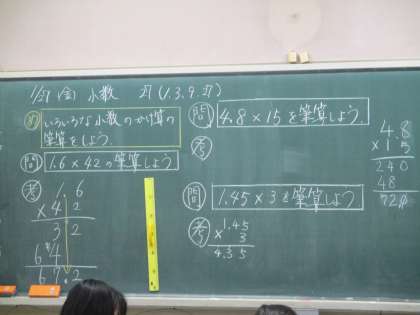 1/27(金) 小数 27(1.3.9.27)
め いろいろな小数のかけ算の
筆算をしよう。
問 1.6×42の筆算しよう
考
1.6
×42
32
64
67.2
問 4.8×15を筆算しよう。
考
4.8
×15
240
48
720
問 1.45×3を筆算しよう
考
1.45
×3
4.35